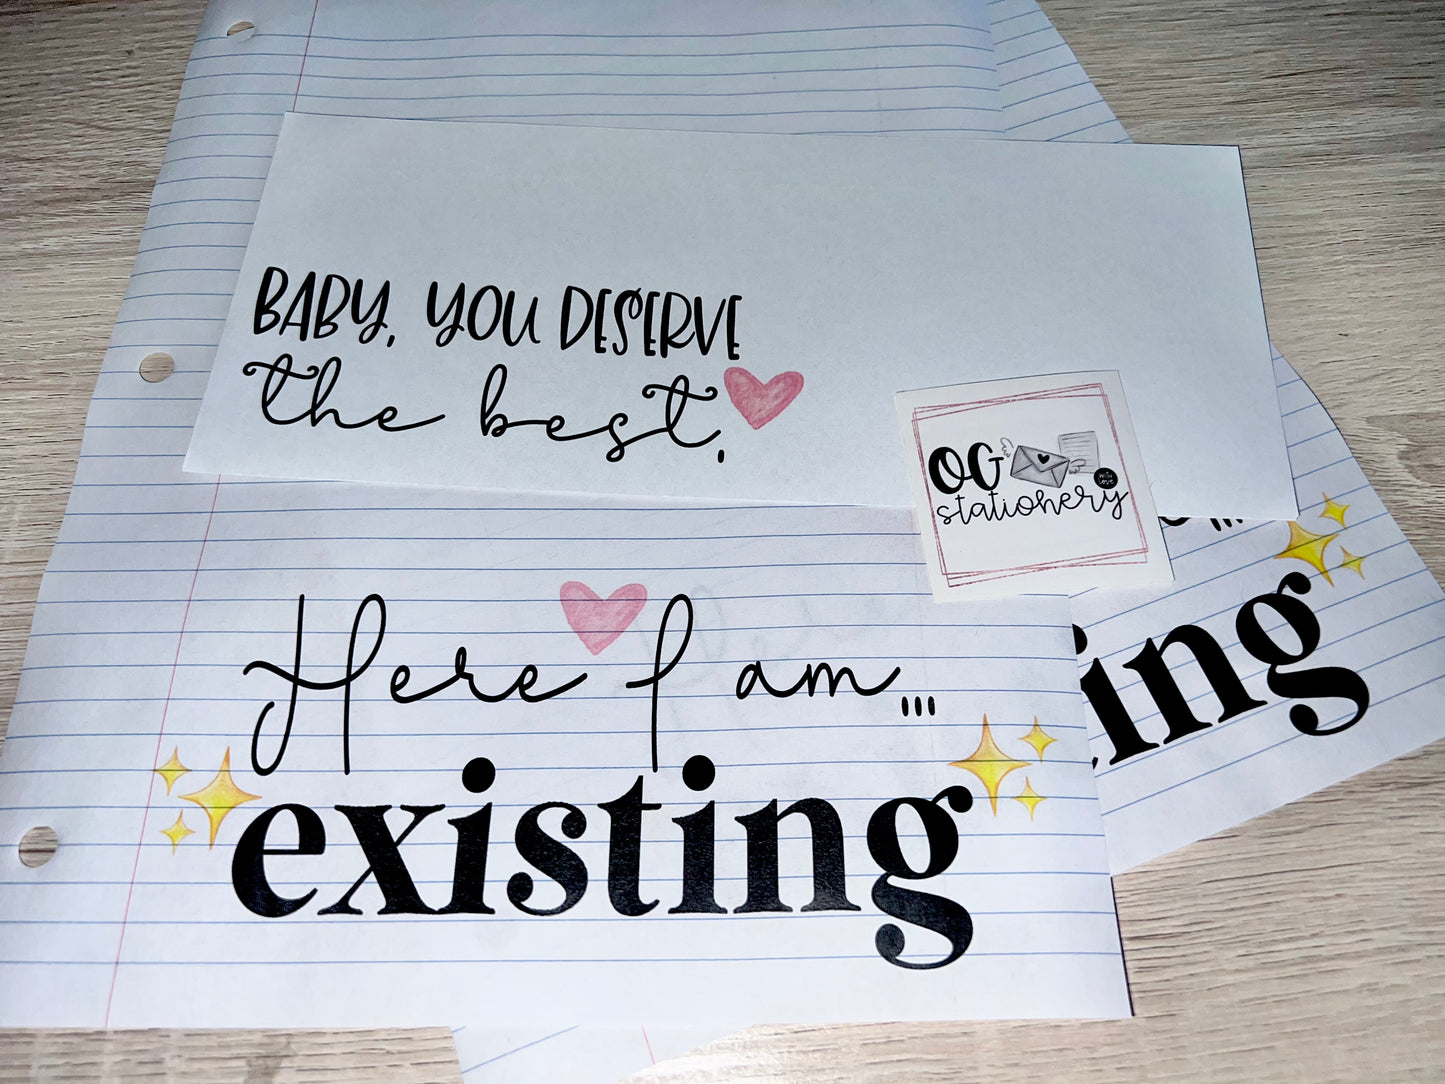 BABY, YOU DESERVE
the best.
OG
stationery
Here I am...
existing
...
ing